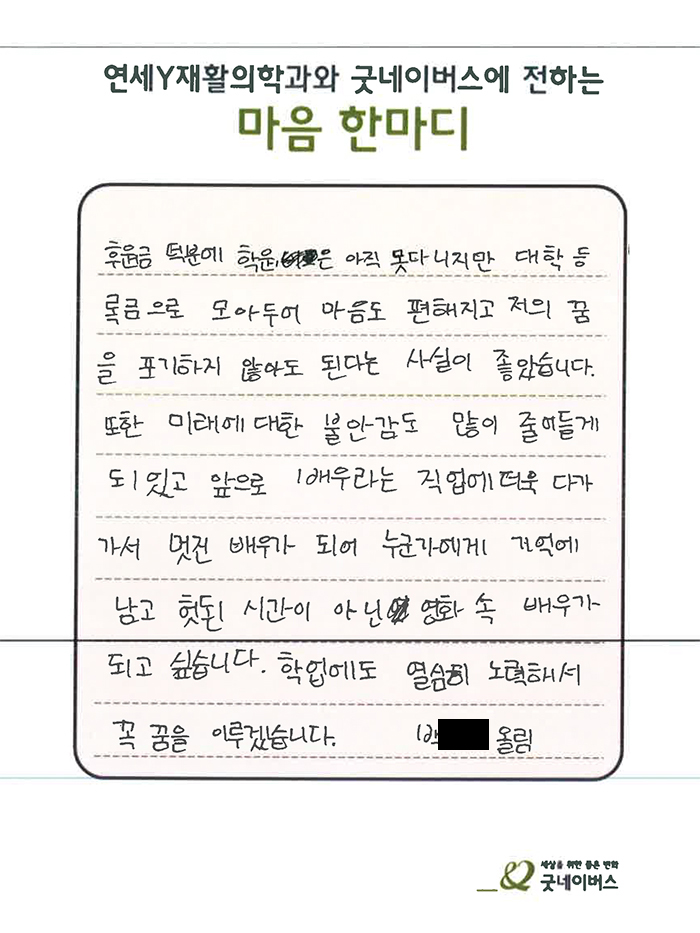 연세Y재활의학과와 굿네이버스에 전하는
마음 한마디
후원금 떡분에 학원은 아직 못다니지만 대학 등
록금으로 모아두어 마음도 편해지고 저의 꿈
을 포기하지 않아도 된다는 사실이 좋았습니다.
또한 미래에 대한 불안감도 많이 줄어들게
되있고 앞으로 배우라는 직업에 더욱 다가
가서 멋진 배우가 되어 누군가에게 기억에
남고 헛된 시간이 아닌 영화 속 배우가
되고 싶습니다. 학업에도 열심히 노력해서
꼭 꿈을 이루겠습니다. 백 올림
세상을 위한 좋은 변화
굿네이버스